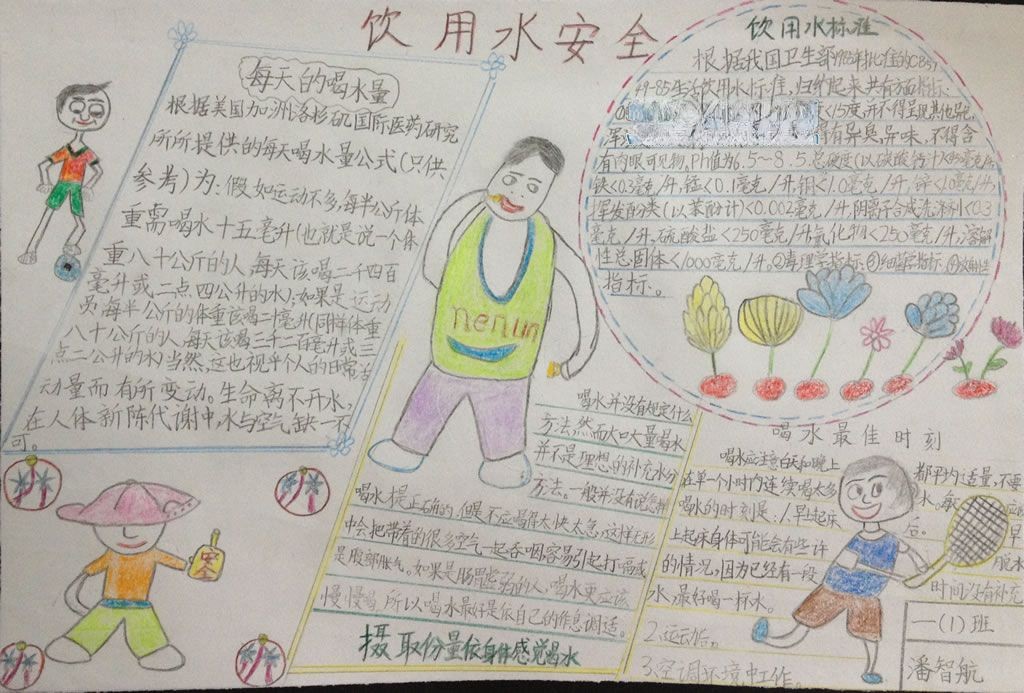 饮用水安全
每天的喝水量
根据美国加洲洛杉矶国际医药研究
所所提供的每天喝水量公式(只供
参考)为:假如运动不多,每半公斤体
重需喝水十五毫升(也就是说一个体
重八十公斤的人,每天该喝二千四百
毫升或二点四公升的水);如果是运动
员,每半公斤的体重该喝二十毫升(同样体重
八十公斤的人,每天该喝三千二百毫升或三
点二公升的水)当然,这也视乎个人的日常活
动量而有所变动。生命离不开水,
在人体新陈代谢中,水与空气缺一不
可。
饮用水标准
根据我国卫生部
49-85生活饮用水标准,归纳起来共有方面指标:
<15度,并不得呈现其他异色,
有异臭、异味,不得含
有肉眼可见物,PH值为6.5~
铁<0.3毫克/升,锰<0.1毫克/升,铜<1.0毫克/升,锌<1.0毫克/升,
挥发酚类(以苯酚计)<0.002毫克/升,阴离子合成洗涤剂<0.3
毫克/升,硫酸盐<250毫克/升,氯化物<250毫克/升,溶解
性总固体<1000毫克/升。②毒理学指标③细菌学指标④放射性
指标。
nenun
喝水并没有规定什么
方法,然而大口大量喝水
并不是理想的补充水分
方法。一般并没有说怎样
喝水是正确的,但是不应喝得太快太急,这样无形
中会把带着的很多空气一起吞咽,容易引起打嗝或
是腹部胀气。如果是肠胃虚弱的人,喝水更应该
慢慢喝,所以喝水最好是依自己的作息调适。
摄取份量依身体感觉喝水
喝水最佳时刻
喝水应注意白天和晚上都平均适量,不要
在单一个小时内连续喝太多水。每
喝水的时刻是:1.早起床后。
上起床身体可能会有些许脱水
的情况,因为已经有一段时间没有补充
水,最好喝一杯水。
2.运动后。
3.空调环境中工作。
安全
一(1)班
潘智航